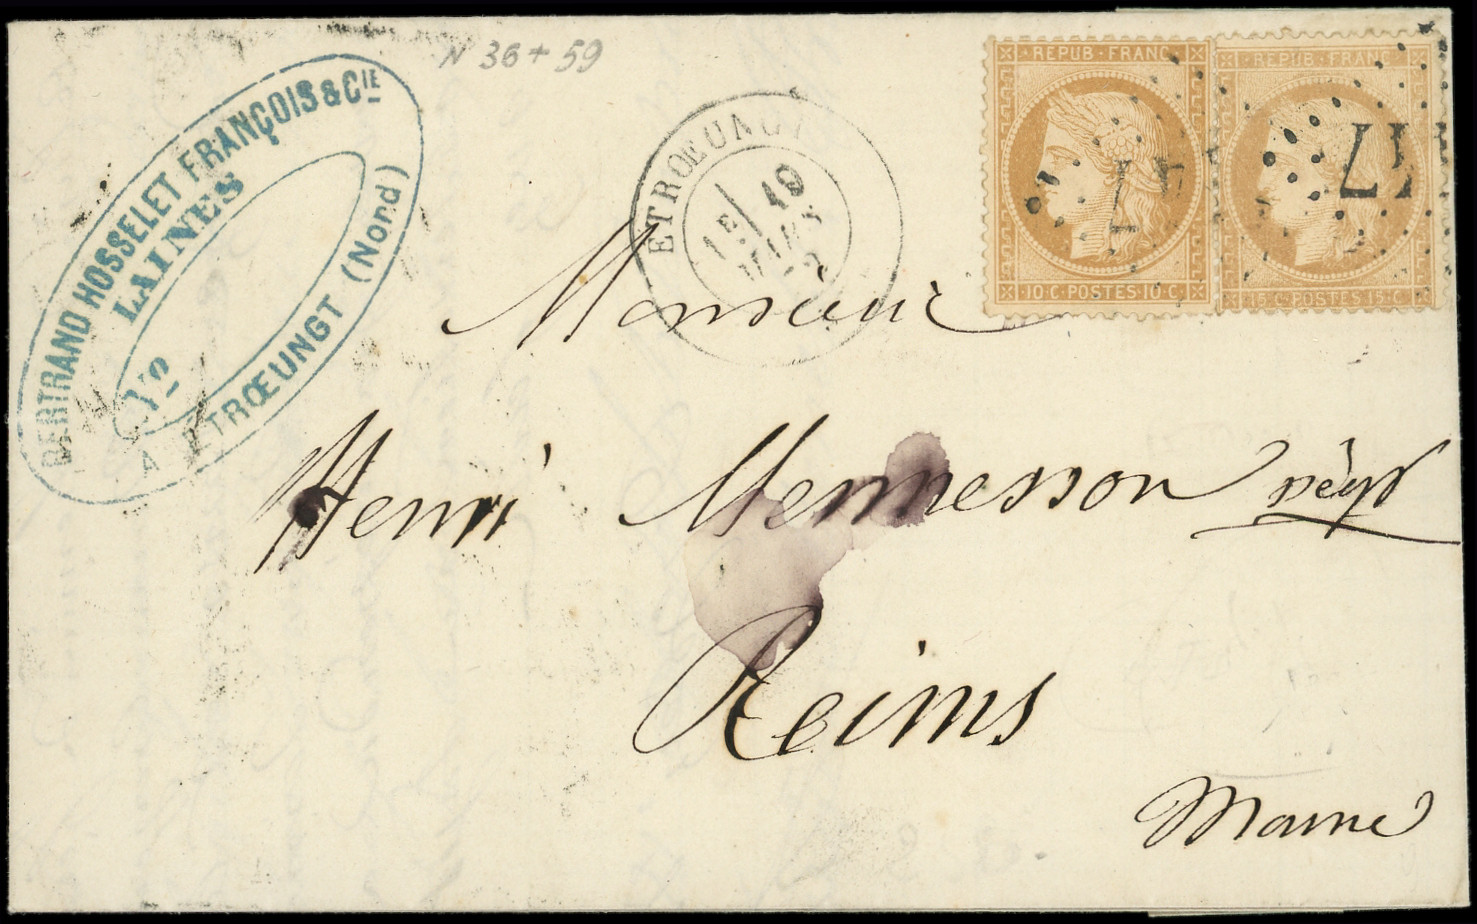 N 36 + 59
BERTRAND HOSSELET FRANÇOIS & CIE
LAINES
A ETRŒUNGT (Nord)
ETRŒUNGT
1E
19
MARS
REPUB · FRANC
10 C · POSTES · 10 C ·
REPUB · FRANC
15 C · POSTES · 15 C
Monsieur
Henri Mennesson négt
Reims
Marne